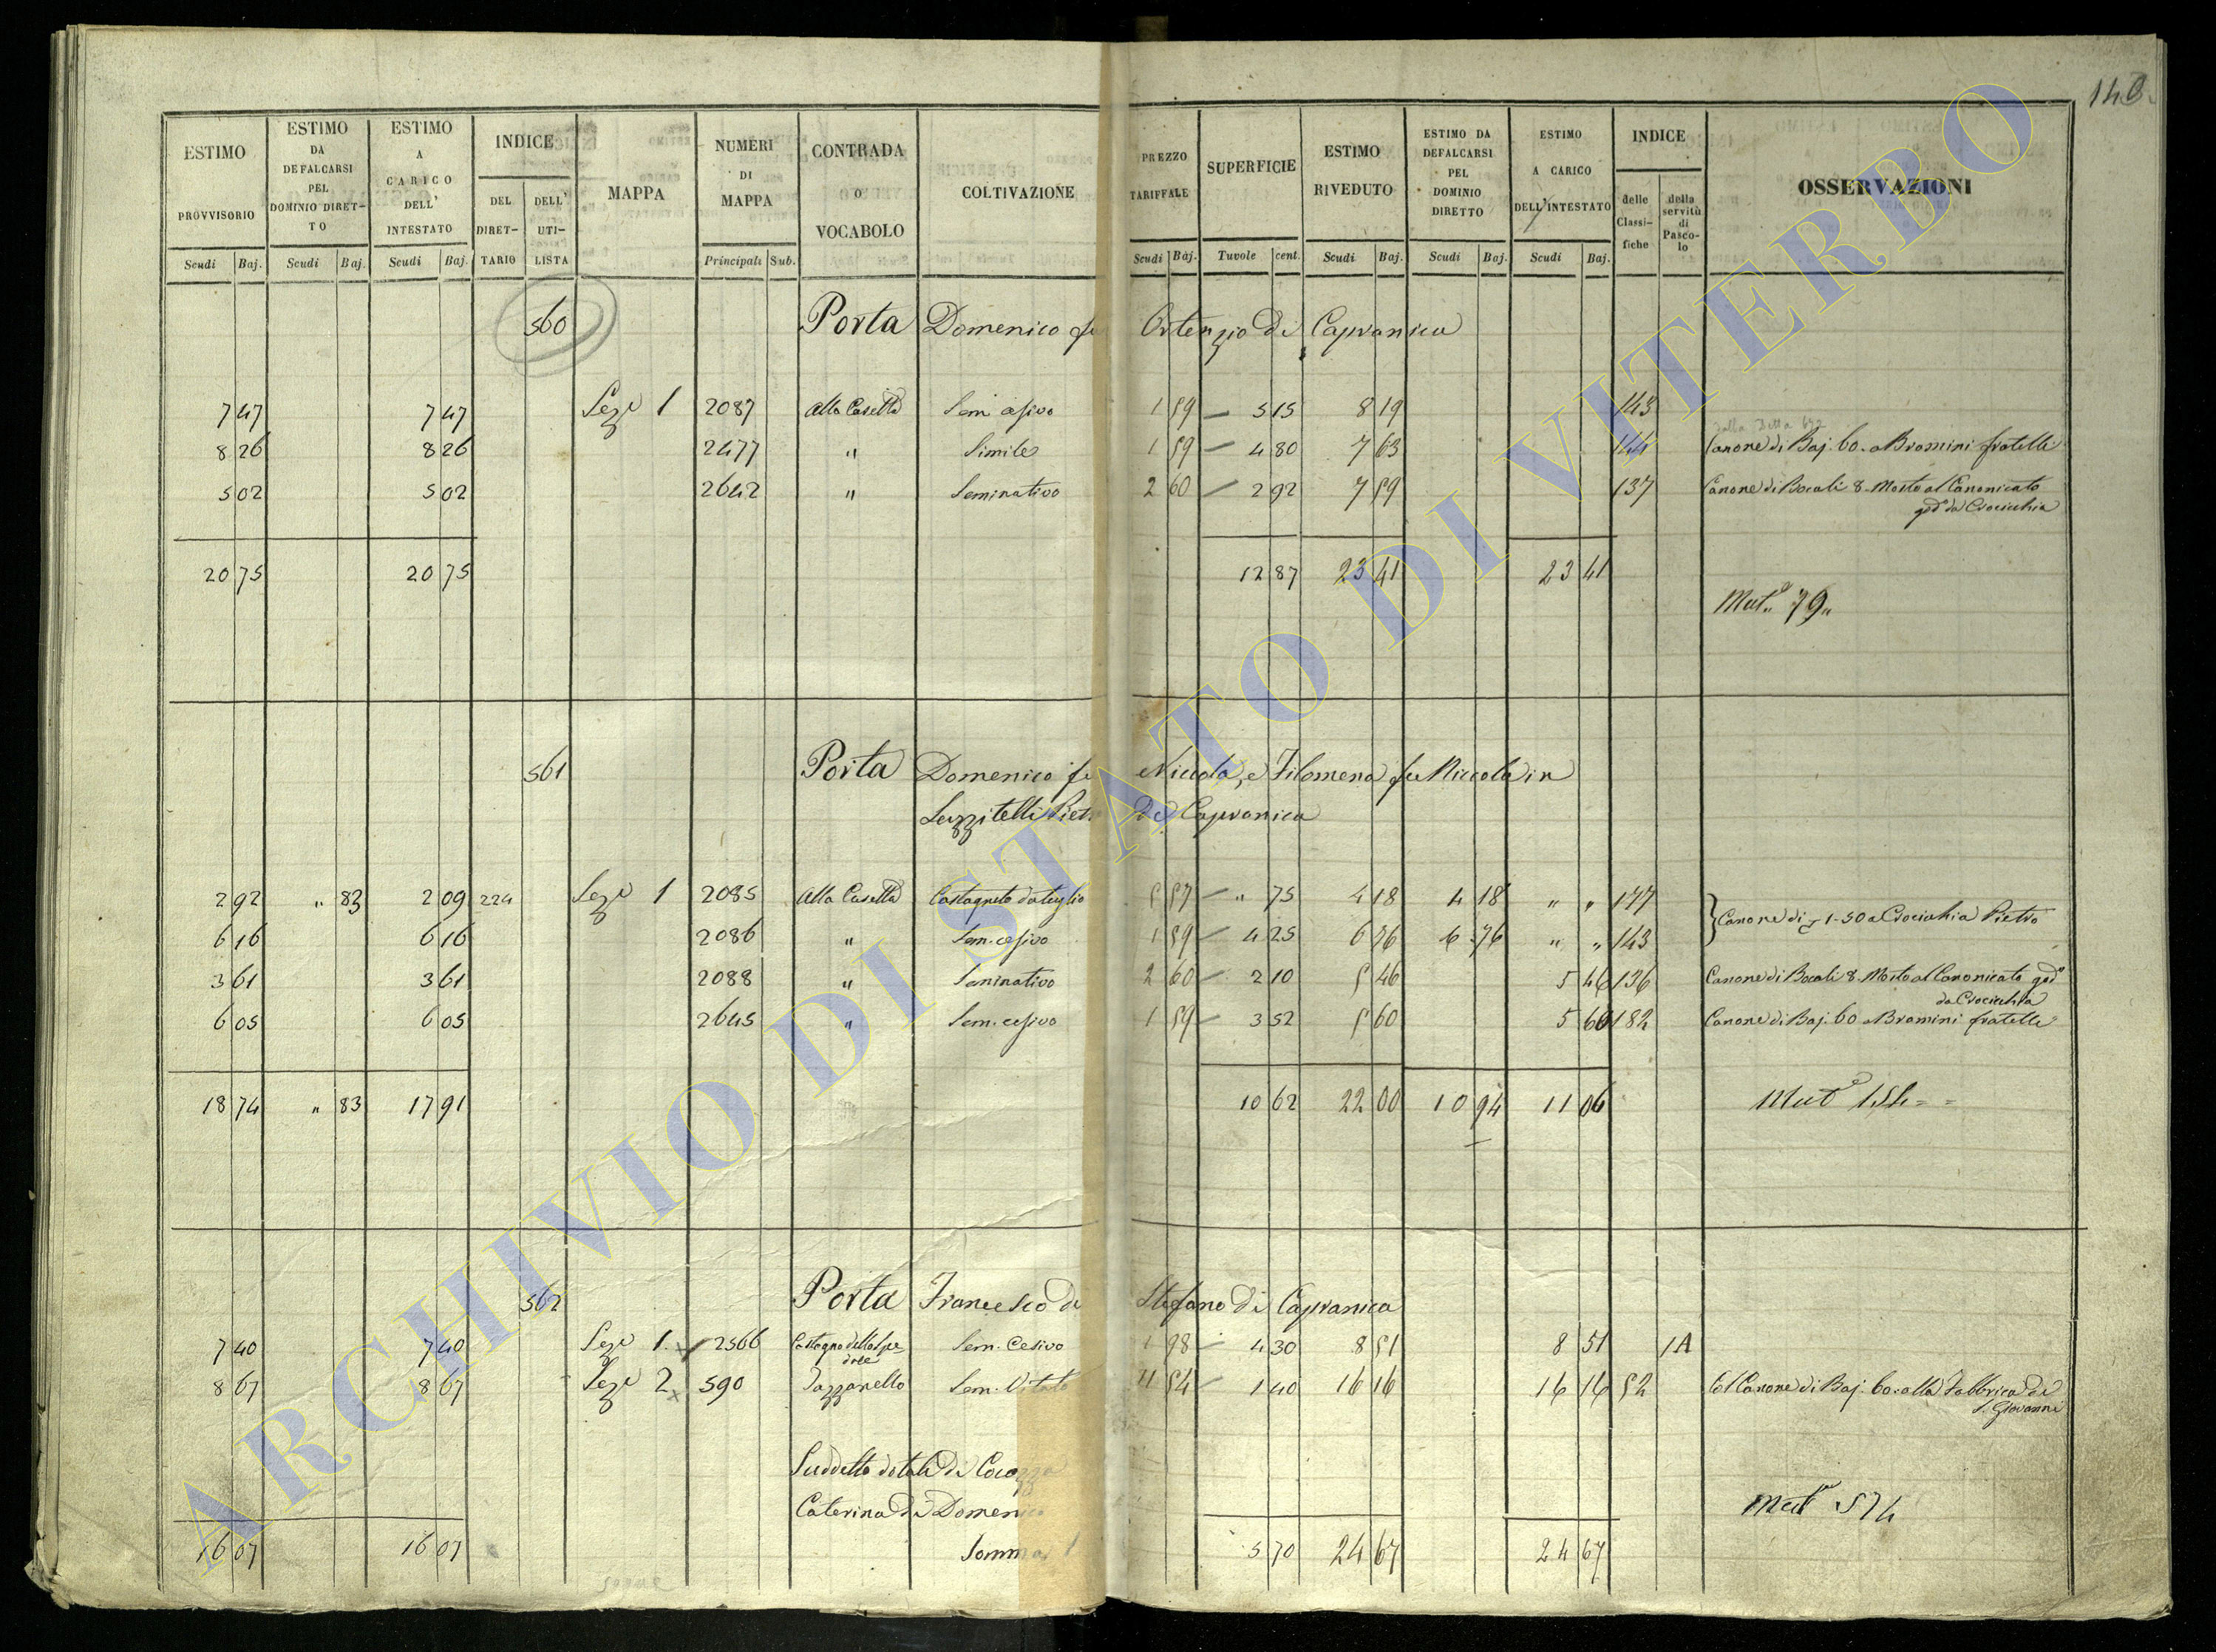 140
ESTIMO PROVVISORIO Scudi Baj. ESTIMO DA DEFALCARSI PEL DOMINIO DIRETTO Scudi Baj. ESTIMO A CARICO DELL' INTESTATO Scudi Baj. INDICE DEL DIRETTARIO DELL' UTILISTA MAPPA NUMERI DI MAPPA Principali Sub. CONTRADA O VOCABOLO COLTIVAZIONE PREZZO TARIFFALE Scudi Baj. SUPERFICIE Tavole cent. ESTIMO RIVEDUTO Scudi Baj. ESTIMO DA DEFALCARSI PEL DOMINIO DIRETTO Scudi Baj. ESTIMO A CARICO DELL'INTESTATO Scudi Baj. INDICE delle Classifiche della servitù di Pascolo OSSERVAZIONI
560 Porta Domenico fu Ortenzio di Capranica
7 47 7 47 Sez.e 1 2087 Alla Casetta Sem cesivo 1 59 — 5 15 8 19 143
8 26 8 26 2477 " Simile 1 59 — 4 80 7 63 144 Canone di Baj. 60. a Bramini fratelli
5 02 5 02 2642 " Seminativo 2 60 — 2 92 7 59 137 Canone di Bocali 8. Mosto al Canonicato
god.o da Crocicchia
20 75 20 75 12 87 23 41 23 41
Mut.e 79"
561 Porta Domenico fu Niccola, e Filomena fu Niccola in
Lezzitelli Pietro di Capranica
2 92 " 83 2 09 224 Sez.e 1 2085 Alla Casetta Castagneto da taglio 5 57 — " 75 4 18 4 18 " " 177
6 16 6 16 2086 " Sem. cesivo 1 59 — 4 25 6 76 6 76 " " 143 Canone di 1-50 a Crocichia Pietro
3 61 3 61 2088 " Seminativo 2 60 — 2 10 5 46 5 46 136 Canone di Bocali 8. Mosto al Canonicato god.o
da Crocicchia
6 05 6 05 2645 " Sem. cesivo 1 59 — 3 52 5 60 5 60 182 Canone di Baj. 60 a Bramini fratelli
18 74 " 83 17 91 10 62 22 00 10 94 11 06 Mut.e 154 = =
562 Porta Francesco di Stefano di Capranica
7 40 7 40 Sez.e 1. 2566 Sem. Cesivo 1 98 — 4 30 8 51 8 51 1A
8 67 8 67 Sez.e 2 590 Pazzanello Sem. Vitato 11 54 — 1 40 16 16 16 16 52 Col Canone di Baj. 60. alla Fabbrica di
S. Giovanni
Suddetto dotali di Cocozza
Caterina di Domenico
Mut.e 574
16 07 16 07 Somma 5 70 24 67 24 67
ARCHIVIO DI STATO DI VITERBO